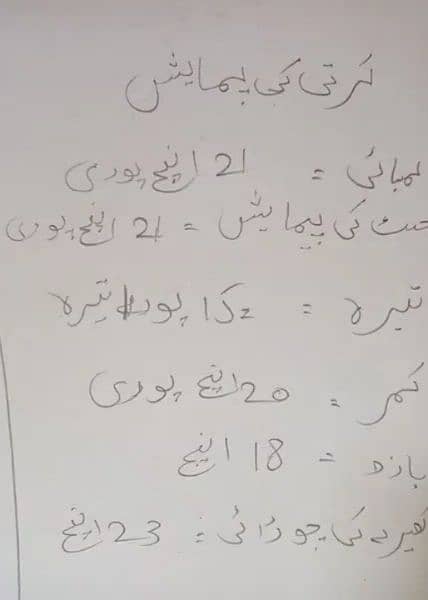 کرتی کی پیمایش
لمبائی = 21 اینچ پوری
کی پیمایش = 21 اینچ پوری
تیرہ = پورا تیرہ
کمر = 20 اینچ پوری
بازہ = 18 اینچ
گھیرے کی چوڑائی = 23 اینچ